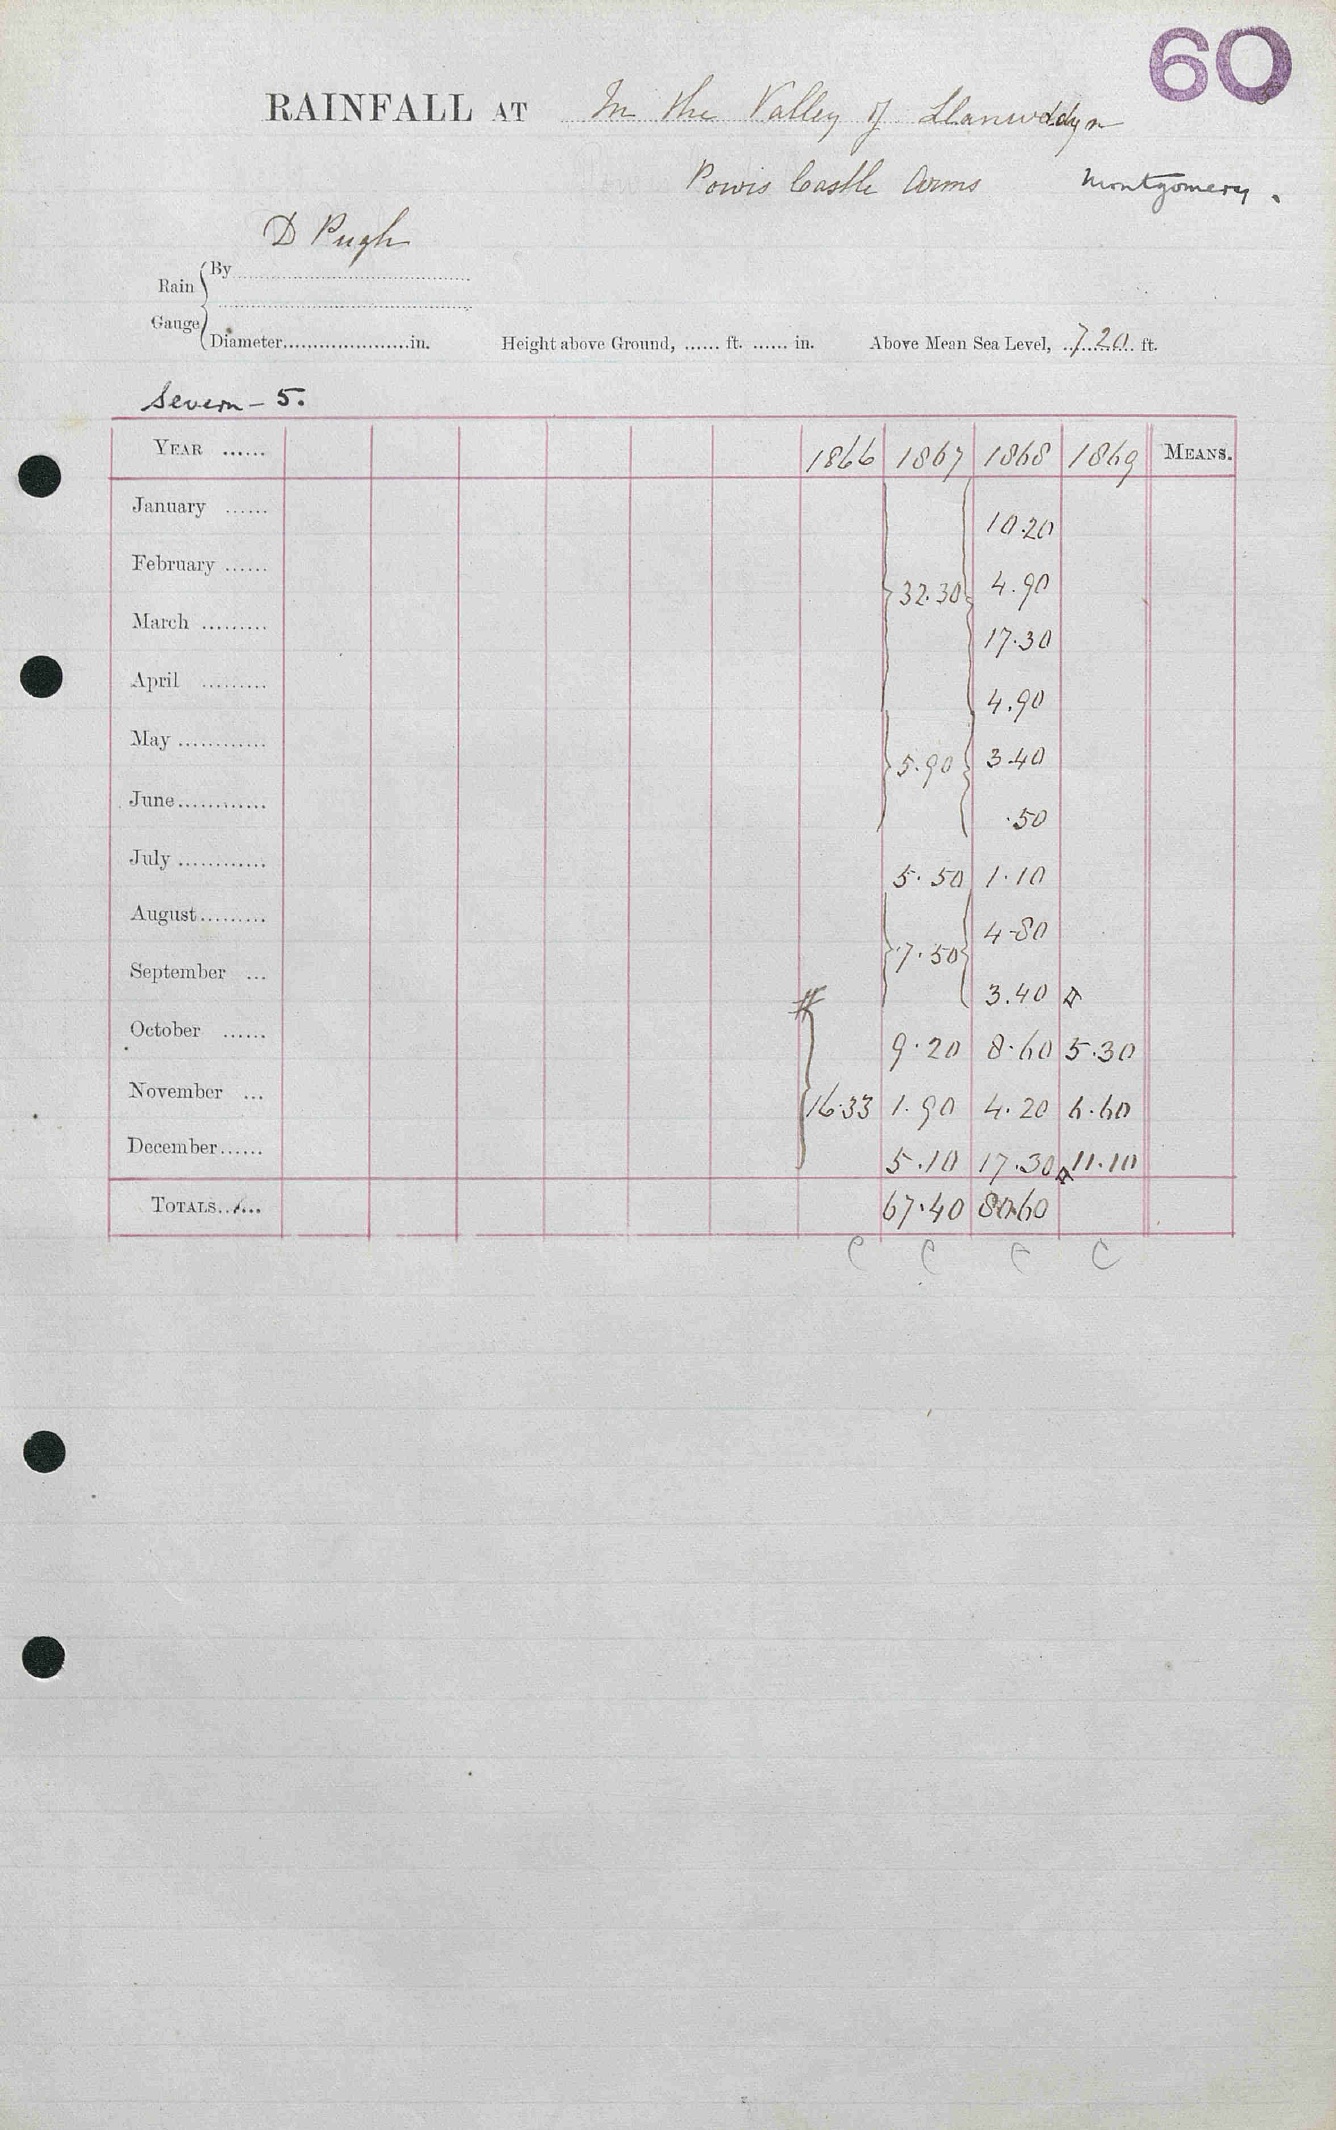 60
RAINFALL AT In the Valley of Llanwddyn
Powis Castle Arms Montgomery.
D Pugh
Rain Gauge { By
Diameter.....................in. Height above Ground, ...... ft. ...... in. Above Mean Sea Level, 720 ft.
Severn - 5.
YEAR ...... 1866 1867 1868 1869 MEANS.
January ...... 10.20
February ...... 32.30 4.90
March ......... 17.30
April ......... 4.90
May ............ 5.90 3.40
June............ .50
July ............ 5.50 1.10
August......... 4.80
September ... 7.50 3.40
October ...... 9.20 8.60 5.30
November ... 16.33 1.90 4.20 6.60
December...... 5.10 17.30 11.10
TOTALS...... 67.40 80.60
C C C C